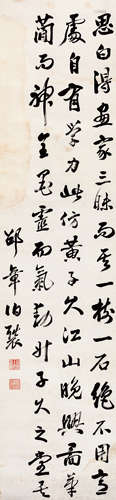 思白得画家三昧而其一树一石绝不用古
处自有学力此仿黄子久江山晚兴图笔
简而神全墨灵而气动升子久之堂矣
邵章伯褧